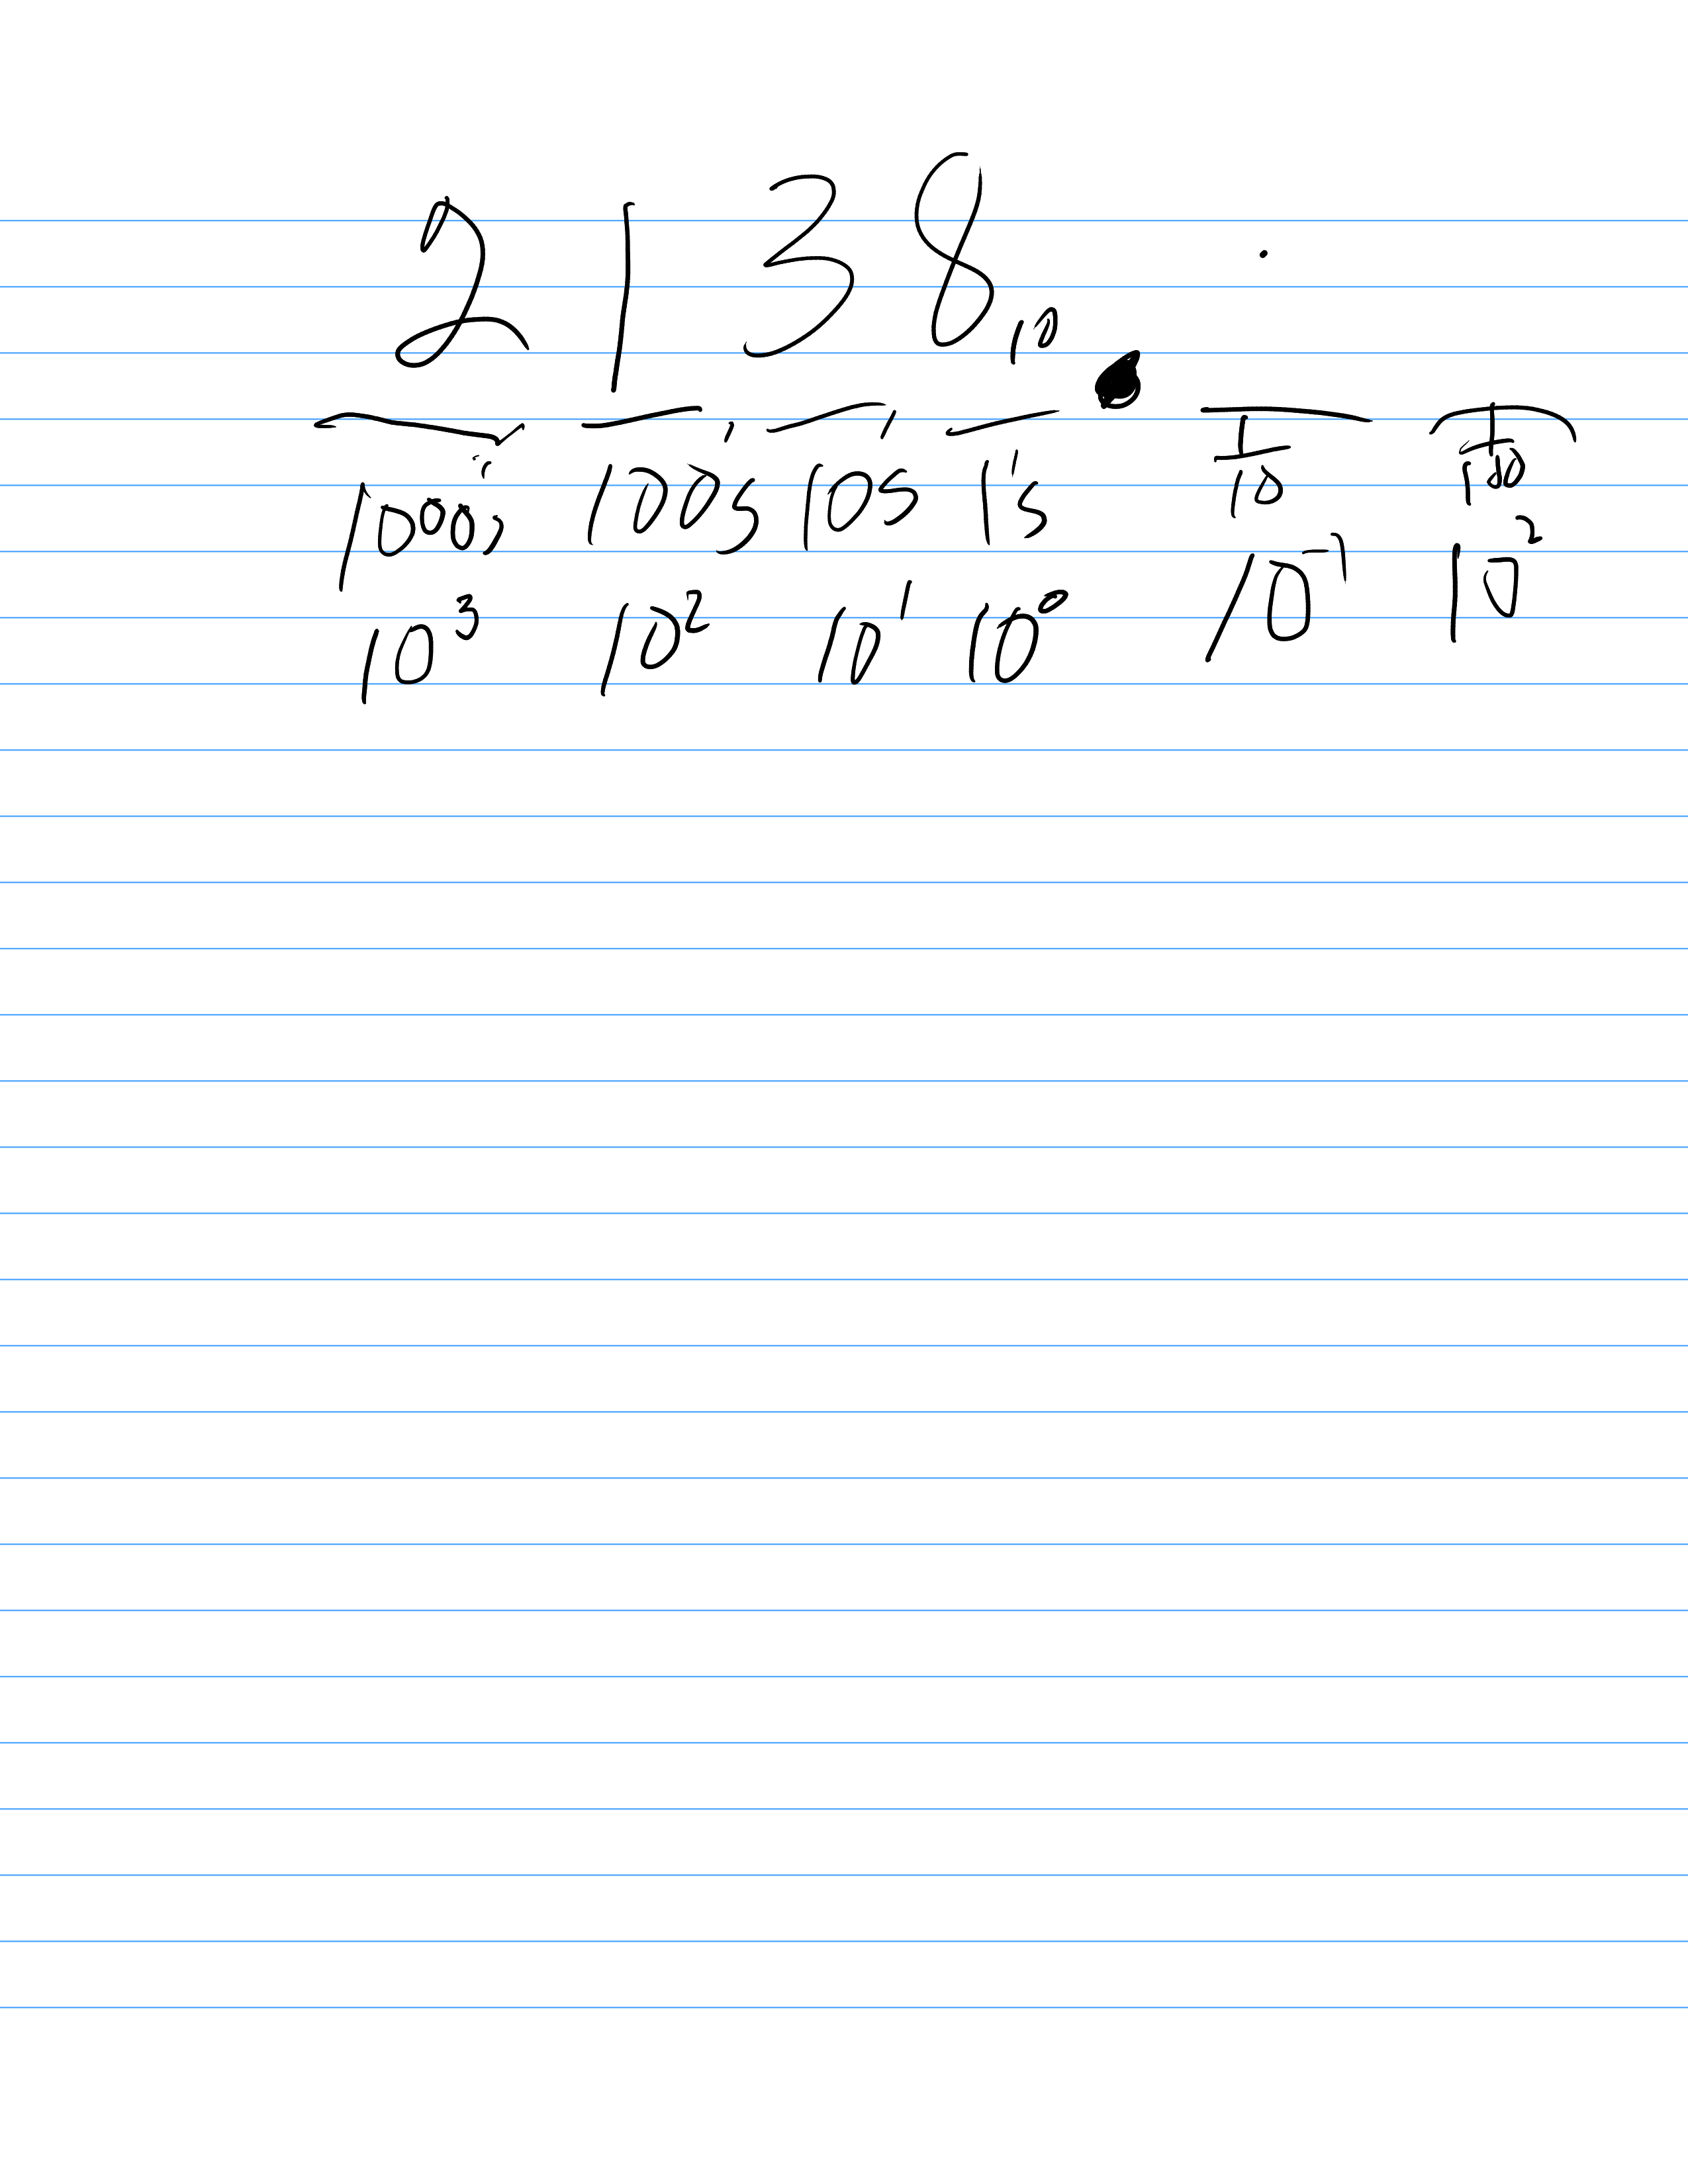 2 1 3 8₁₀ .
1000's 100's 10's 1's 1/10 1/100
10³ 10² 10¹ 10⁰ 10⁻¹ 10²